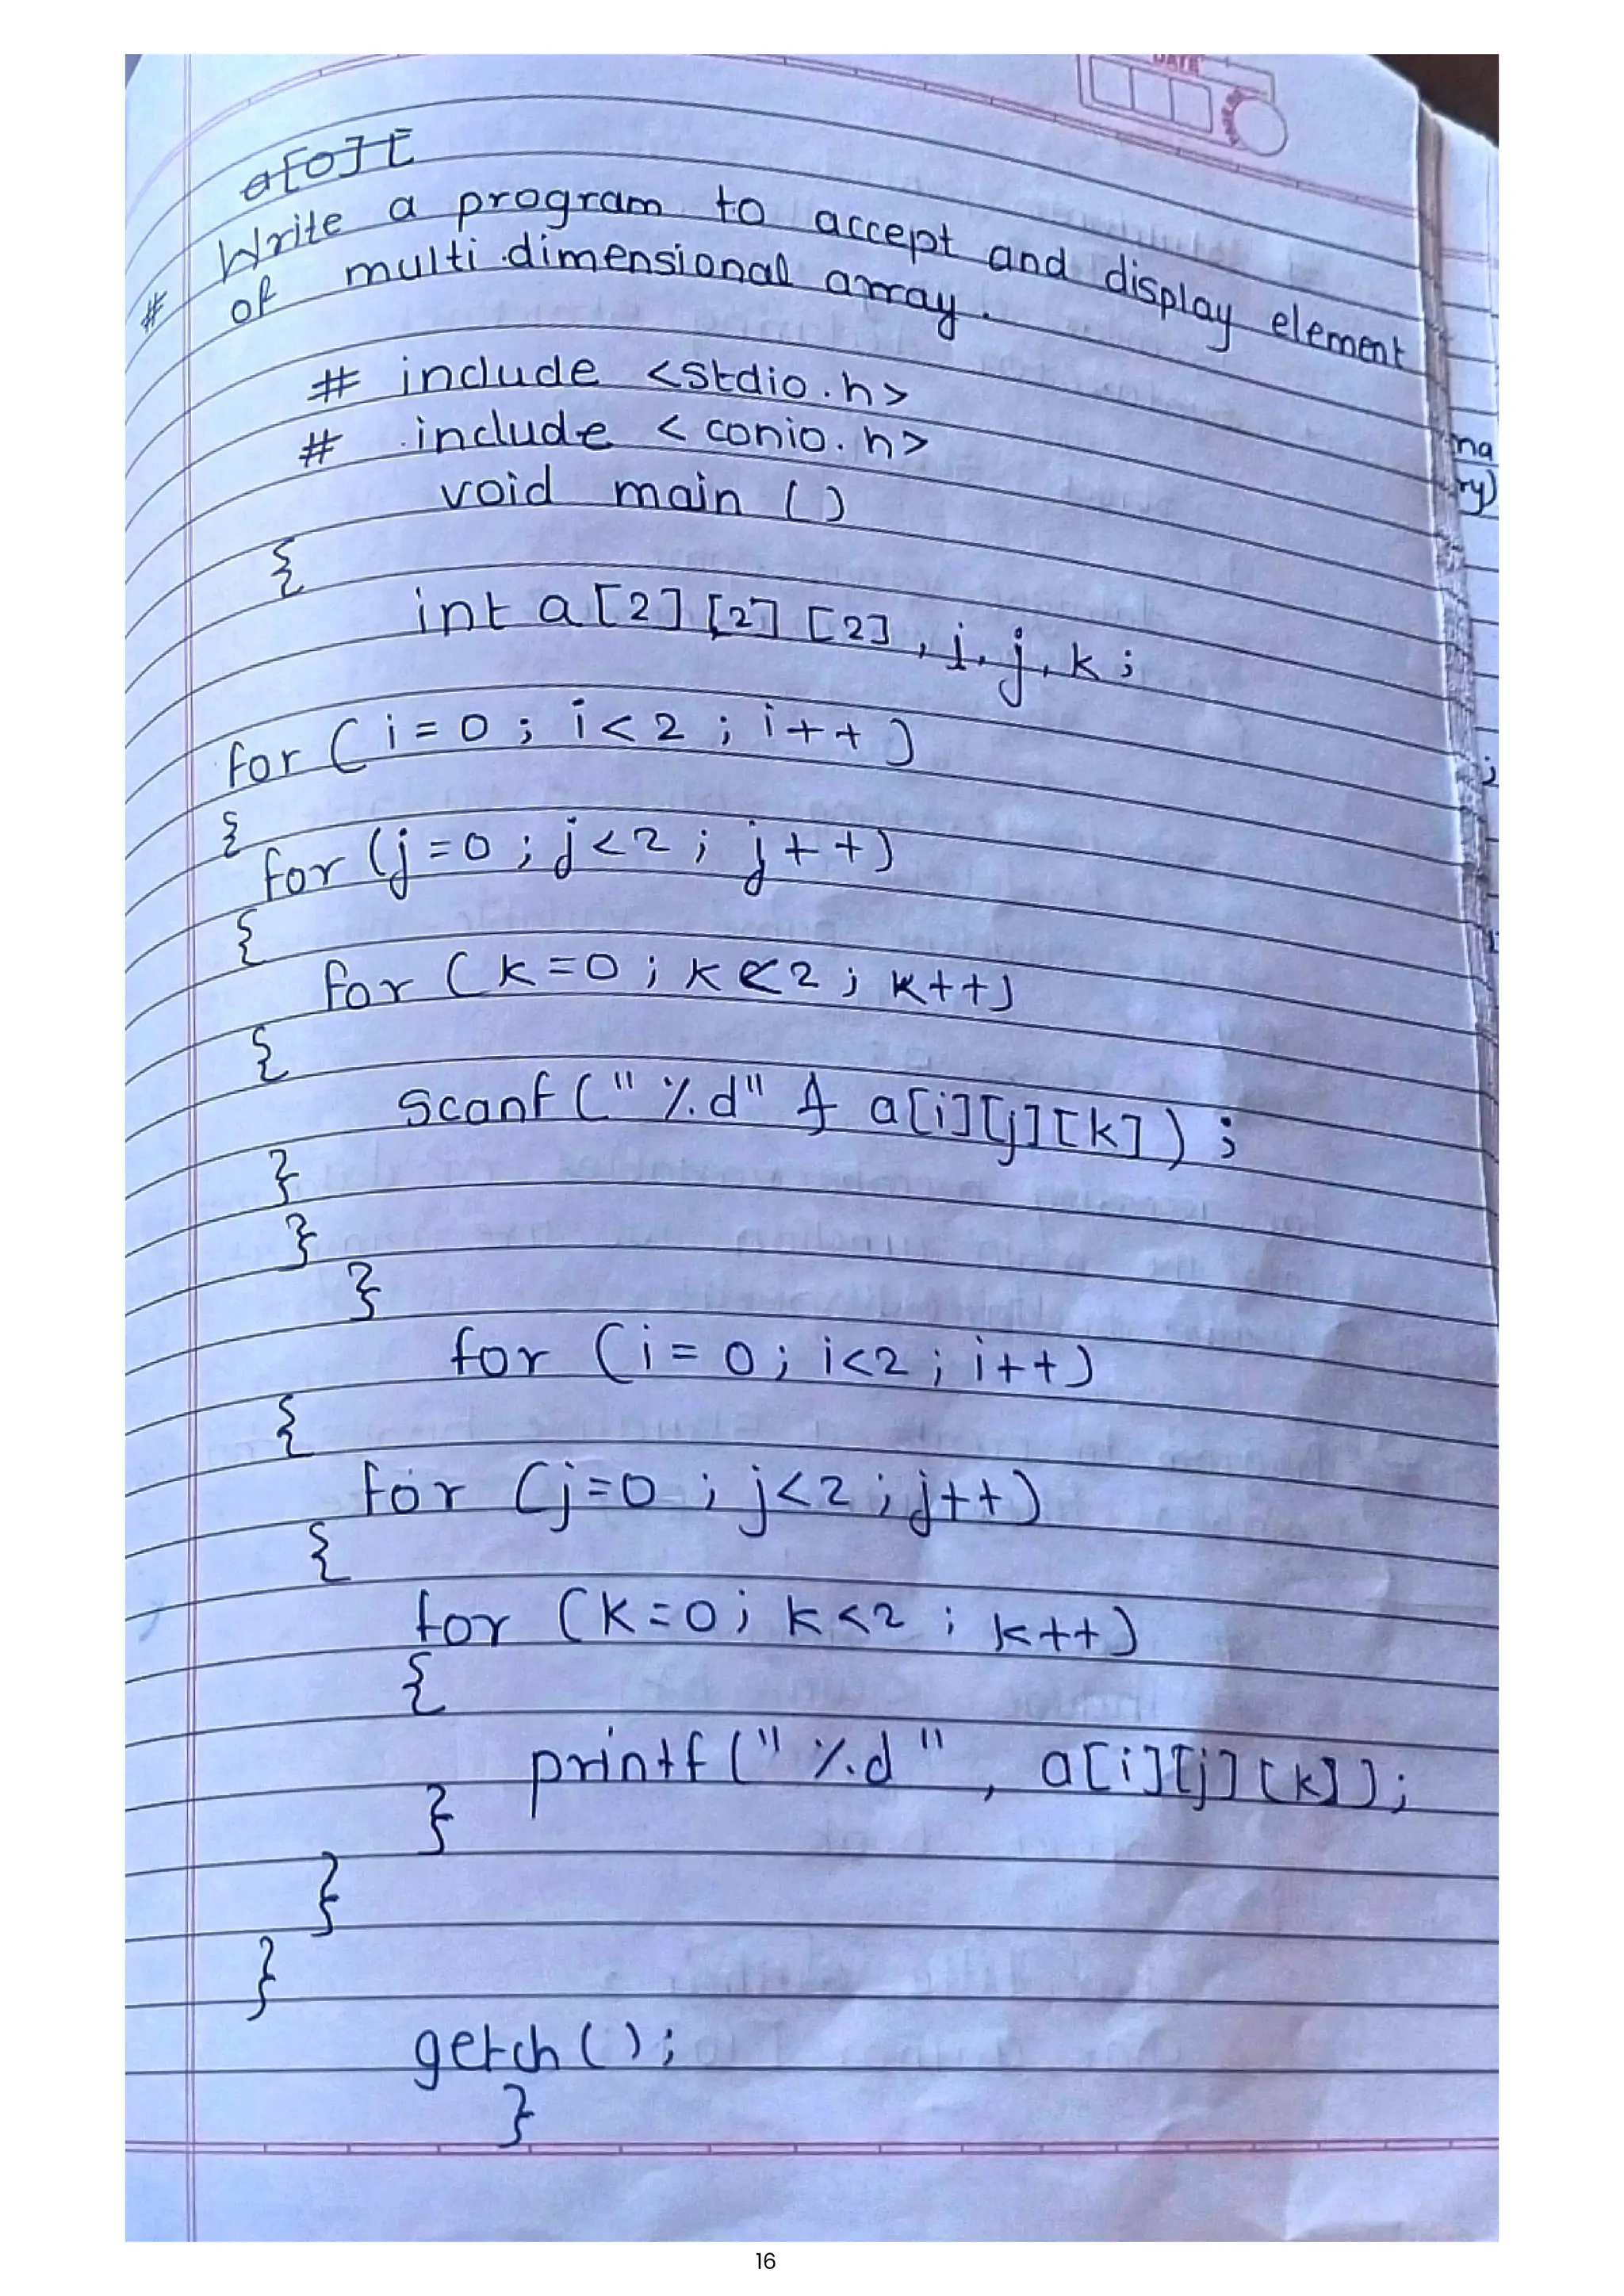 DATE
a[0][
# Write a program to accept and display element
of multi dimensional array.
# include <stdio.h>
# include <conio.h>
void main ()
{
int a[2][2][2], i, j, k;
for (i=0; i<2; i++)
{
for (j=0; j<2; j++)
{
for (k=0; k<2; k++)
{
scanf("%d" & a[i][j][k]);
}
}
}
for (i=0; i<2; i++)
{
for (j=0; j<2; j++)
{
for (k=0; k<2; k++)
{
printf("%d", a[i][j][k]);
}
}
}
getch();
}
na
ry)
;
16